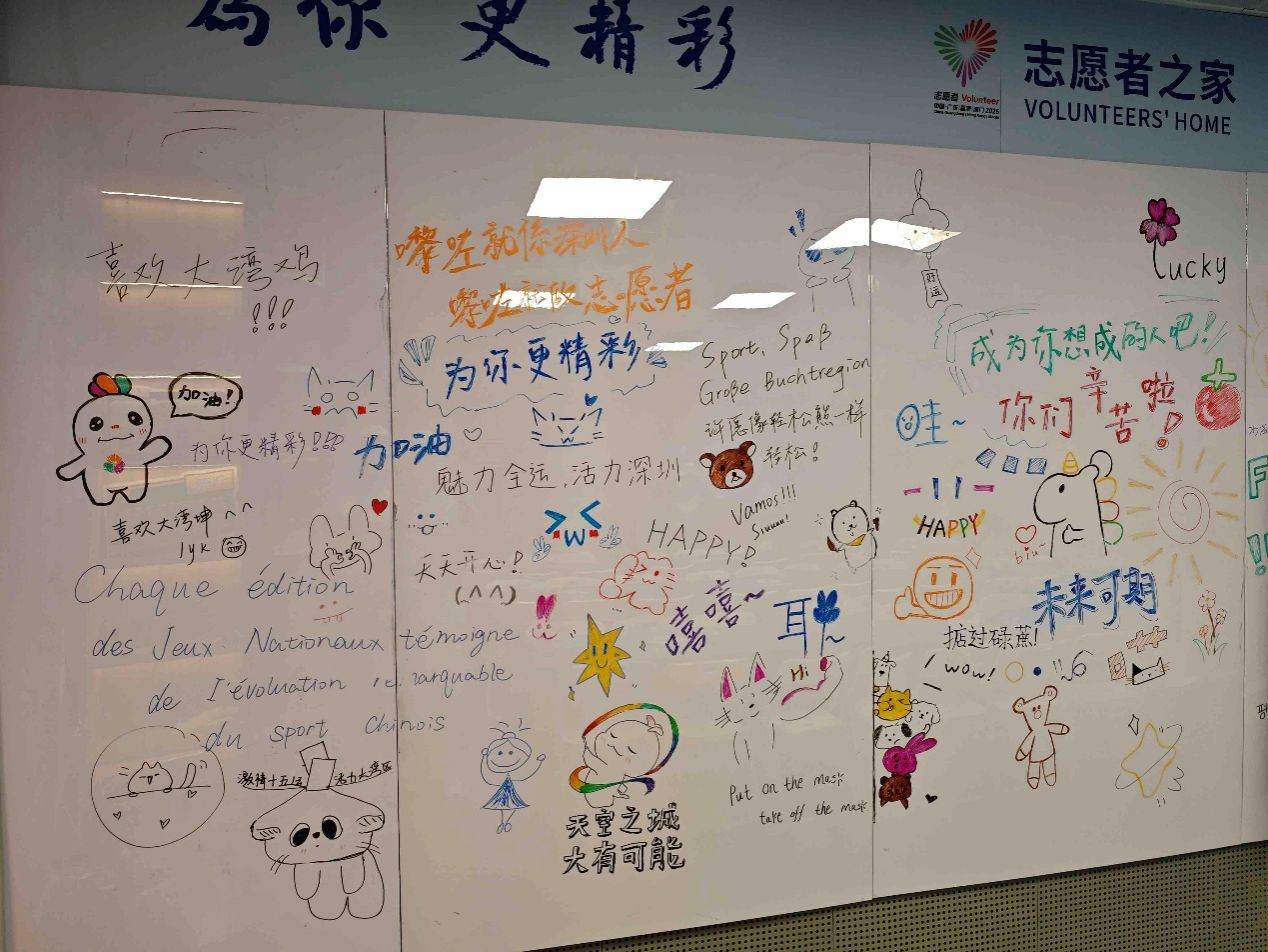 為你 更精彩
志愿者 Volunteer
志愿者之家
VOLUNTEERS' HOME
喜欢大湾鸡
!!!
加油!
为你更精彩!!!
加油
喜欢大湾坤 ^^
lyk
Chaque édition
des Jeux Nationaux témoigne
de l'évoluation remarquable
du sport chinois
激情十五运
活力大湾区
嚟咗就係深圳人
嚟咗就做志愿者
为你更精彩
魅力全运,活力深圳
天天开心!
(^^)
HAPPY!
嘻嘻~
耳~
Sport, Spaß
Große Buchtregion
许愿像轻松熊一样
轻松!
Vamos!!!
Siuuuu!
Hi
Put on the mask
take off the mask
天空之城
大有可能
好运
Lucky
成为你想成的人吧!
哇~
你们辛苦啦!
HAPPY
biu~
未来可期
掂过碌蔗!
wow!